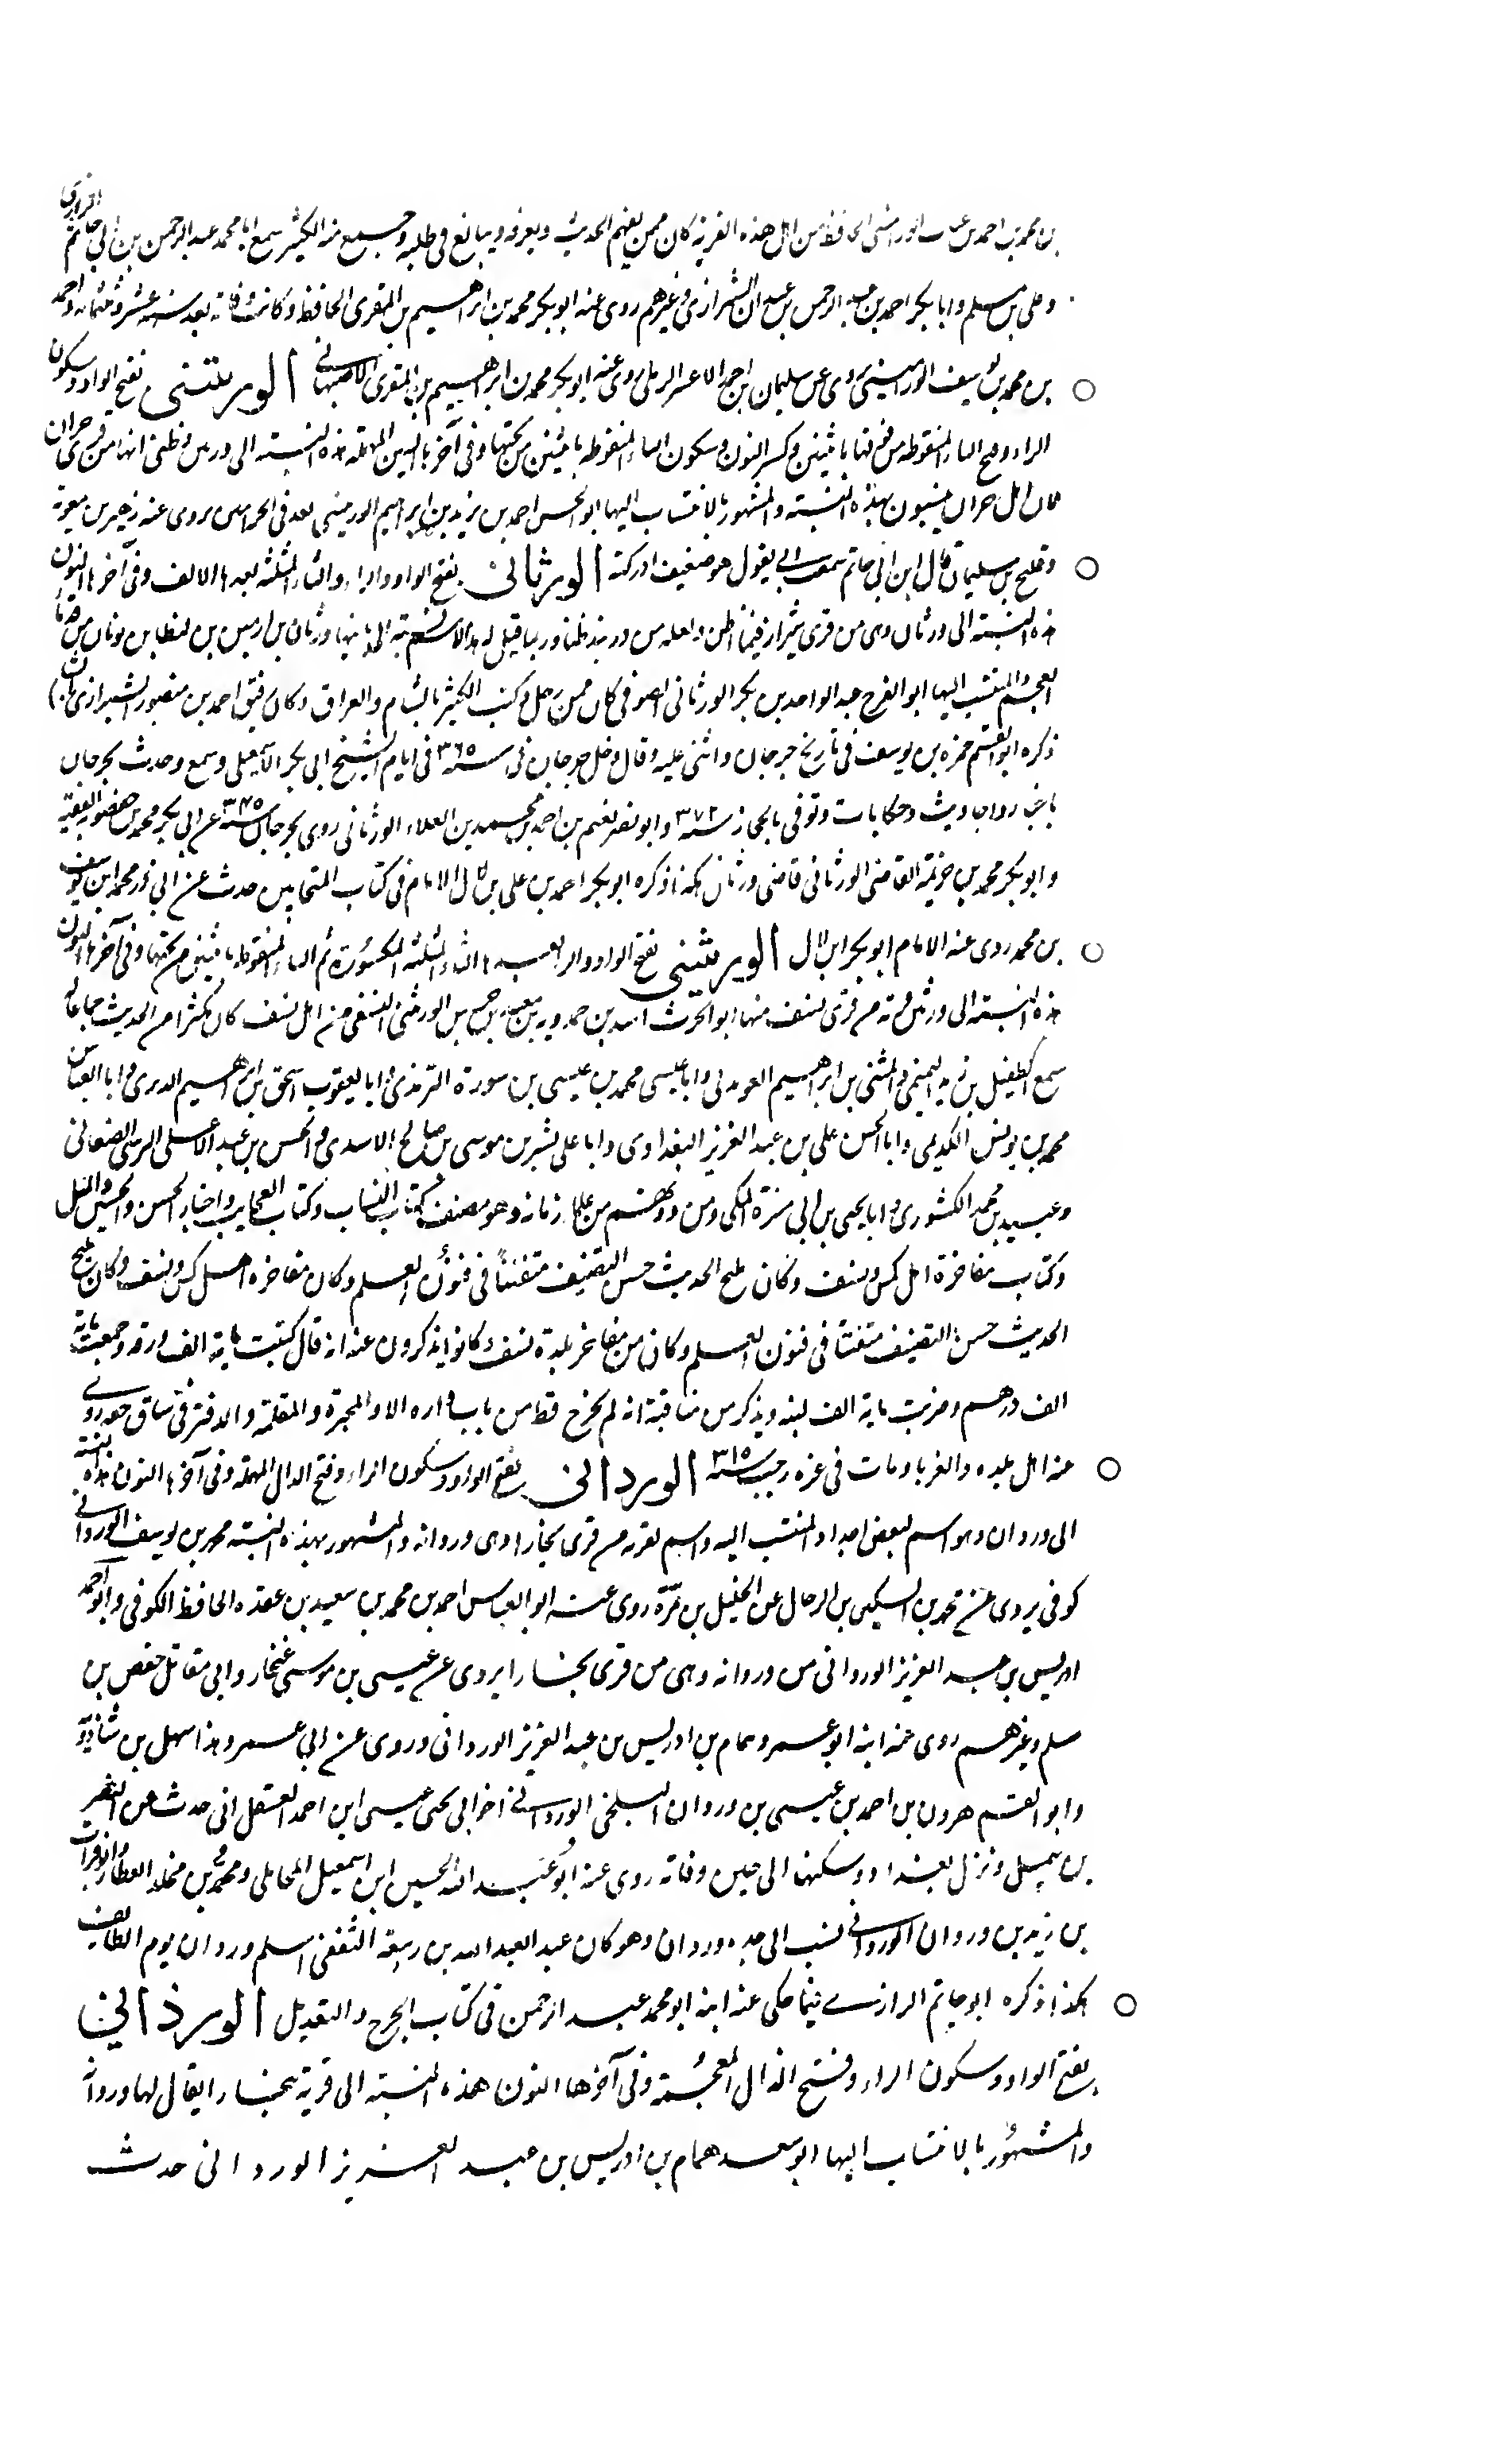 بن محمد بن احمد بن الورامينى الحافظ من اهل هذه القرية كان ممن يفهم الحديث ويعرفه ويبالغ فى طلبه وجمع منه الكثير سمع ابا محمد عبد الرحمن بن ابى حاتم الرازى
وعلى بن مسلم وابا بكر احمد بن عبد الرحمن بن عبدان الشيرازى وغيرهم روى عنه ابو بكر محمد بن ابراهيم بن المقرى الحافظ وكانت وفاته بعد سنة عشر وثلثمائة واحمد
بن محمد بن يوسف الورامينى يروى عن سليمان بن روى عنه ابو بكر محمد بن ابراهيم بن المقرى الاصبهانى الورتنيسى بفتح الواو وسكون
الراء وفتح التاء المنقوطة من فوقها باثنتين وكسر النون وسكون الياء المنقوطة باثنتين من تحتها وفى آخرها السين المهملة هذه النسبة الى ورتنيس وظنى انها من قرى حران
فان اهل حران ينسبون بهذه النسبة والمشهور بالانتساب اليها ابو الحسن احمد بن يزيد بن ابراهيم الورتنيسى يعد فى الحرانيين يروى عنه زهير بن معوية
وفليح بن سليمان قال ابن ابى حاتم سمعت ابى يقول هو ضعيف ادركته الورثانى بفتح الواو والراء والثاء المثلثة بعدها الالف وفى آخرها النون
هذه النسبة الى ورثان وهى من قرى شيراز فيما اظن
العجم والمنتسب اليها ابو الفرج عبد الواحد بن بكر الورثانى الصوفى كان ممن رحل وكتب الكثير بالشام والعراق وكان رفيق احمد بن منصور الشيرازى
ذكره ابو القسم حمزة بن يوسف فى تاريخ جرجان واثنى عليه وقال دخل جرجان فى سنة ٣٦٥ فى ايام الشيخ ابى بكر الاسمعيلى وسمع وحدث بجرجان
باخبار واحاديث وحكايات وتوفى بالحجاز سنة ٣٧٢ وابو نصر نعيم بن احمد بن محمد بن العلاء الورثانى روى بجرجان سنة عن ابى بكر محمد بن الفقيه
وابو بكر محمد بن خزيمة القاضى الورثانى قاضى ورثان هكذا ذكره ابو بكر احمد بن على بن لال الامام فى كتاب المتحابين حدث عن ابى زر محمد ابن يوسف
بن محمد روى عنه الامام ابو بكر ابن لال الورثينى بفتح الواو والراء بعدها الثاء المثلثة المكسورة ثم الياء المنقوطة باثنتين من تحتها وفى آخرها النون
هذه النسبة الى ورثين قرية من قرى نسف منها ابو الحرث اسد بن حمدويه بن سعيد بن الورثينى النسفى من اهل نسف كان مكثرا من الحديث جماعا له
سمع الطفيل بن زيد التميمى والمثنى بن ابراهيم وابا عيسى محمد بن عيسى بن سورة الترمذى وابا يعقوب اسحق بن ابراهيم الدبرى وابا العباس
محمد بن يونس الكديمى وابا الحسن على بن عبد العزيز البغدادى وابا على بشر بن موسى بن صالح الاسدى والحسن بن عبد الاعلى الصنعانى
وعبيد بن محمد الكشورى وابا يحيى بن ابى مسرة المكى ومن دونهم من علماء زمانه وهو مصنف كتاب البستان وكتاب العجايب واخبار الحسن والحسين
وكتاب مفاخرة اهل كس ونسف وكان مليح الحديث حسن التصنيف متفننا فى فنون العلم وكان مفاخرة اهل كس ونسف وكان مليح
الحديث حسن التصنيف متفننا فى فنون العلم وكان من مفاخر بلدة نسف وكانوا يذكرون عنه انه قال كتبت ماية الف ورقة وجمعت ماية
الف درهم وضربت ماية الف لبنة ويذكر من مناقبه انه لم يخرج قط من باب داره الا والمحبرة والمقلمة والدفتر فى ساق روى
عنه اهل بلده والغرباء ومات فى غرة رجب سنة ٣١٥ الوردانى بفتح الواو وسكون الراء وفتح الدال المهملة وفى آخرها النون هذه النسبة
الى وردان وهو اسم لبعض اجداد المنتسب اليه واسم لقرية من قرى بخارا وهى وردانة والمشهور بهذه النسبة محمد بن يوسف الوردانى
كوفى يروى عن محمد بن السكين بن الرحال عن الخليل بن مرة روى عنه ابو العباس احمد بن محمد بن سعيد بن عقدة الحافظ الكوفى وابو احمد
ادريس بن عبد العزيز الوردانى من وردانة وهى من قرى بخارا يروى عن عيسى بن موسى غنجار وابى مقاتل حفص بن
سلم وغيرهم روى عنه ابنه ابو عمرو همام بن ادريس بن عبد العزيز الوردانى وروى عن ابى عمرو هذا سهل بن شاذويه
وابو القسم هرون بن احمد بن عيسى بن وردان البلخى الوردانى اخو ابى يحيى عيسى ابن احمد العسقلانى حدث عن النضر
بن شميل ونزل بغداد وسكنها الى حين وفاته روى عنه ابو عبد الله الحسين ابن اسمعيل المحاملى ومحمد بن مخلد العطار والفرات
بن زيد بن وردان الوردانى نسب الى جده وردان وهو كان عبدا لعبد الله بن ربيعة الثقفى اسلم وردان يوم الطايف
هكذا ذكره ابو حاتم الرازى فيما حكى عنه ابنه ابو محمد عبد الرحمن فى كتاب الجرح والتعديل الورذانى
بفتح الواو وسكون الراء وفتح الذال المعجمة وفى آخرها النون هذه النسبة الى قرية ببخارا يقال لها وردانة
والمشهور بالانتساب اليها ابو سعد همام بن ادريس بن عبد العزيز الوردانى حدث